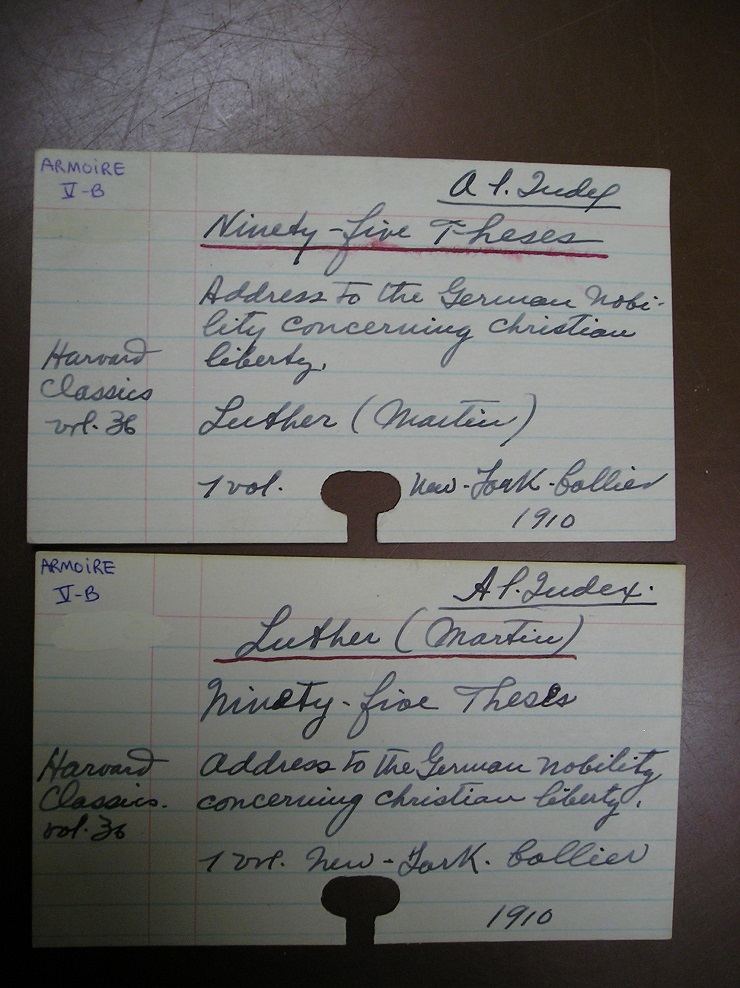 ARMOIRE
V-B
A l'Index
Ninety-five Theses
Address to the German Nobi-
lity concerning christian
liberty.
Harvard
Classics
vol. 36
Luther (Martin)
1 vol. New-York-Collier
1910
ARMOIRE
V-B
A l'Index.
Luther (Martin)
Ninety-five Theses
Address to the German nobility
concerning christian liberty.
Harvard
Classics.
vol. 36
1 vol. New-York. Collier
1910